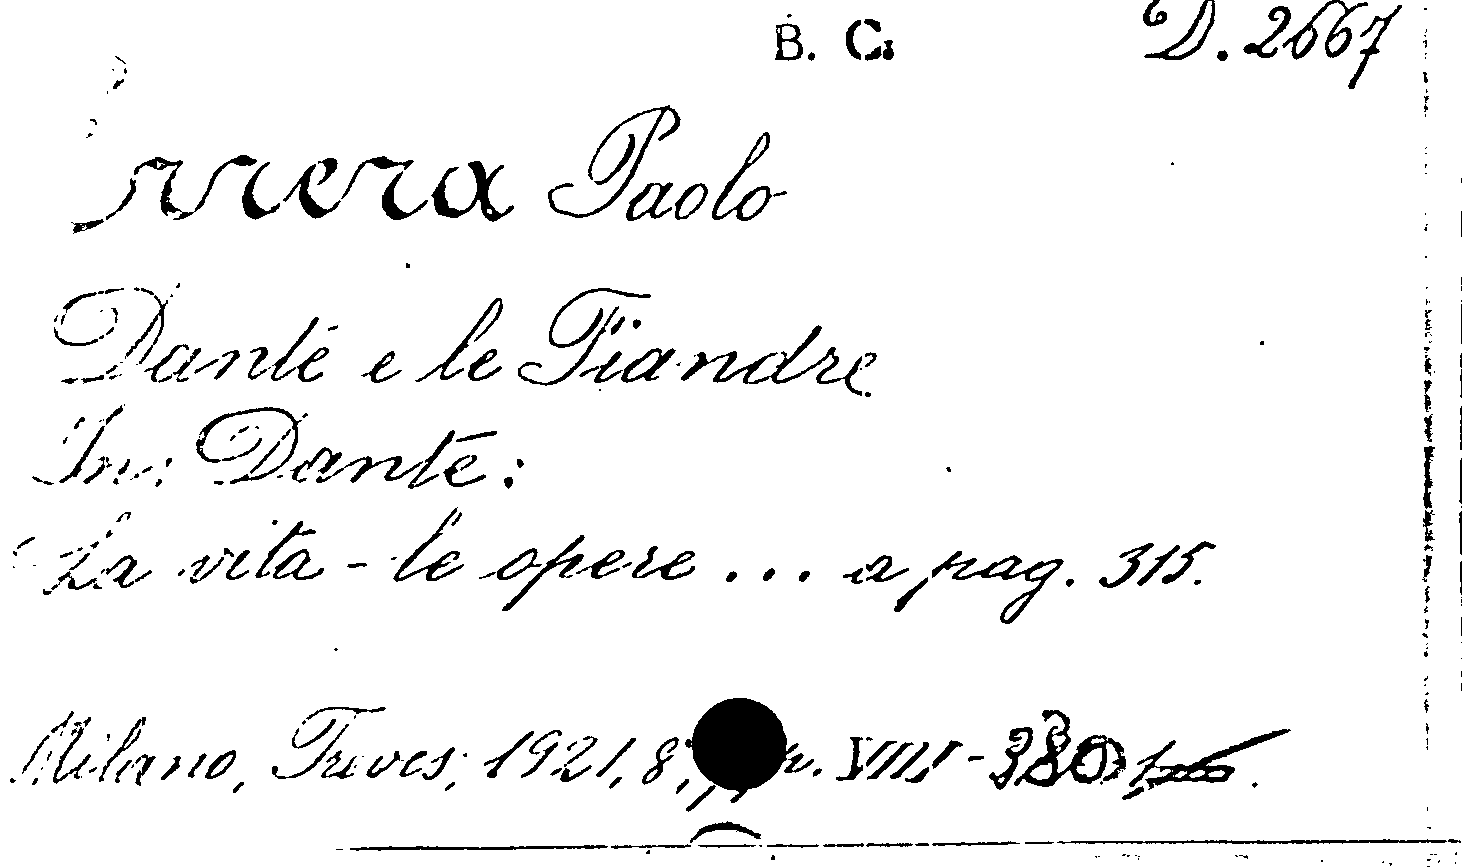 B. C. D. 2667
Errera Paolo
Dante e le Fiandre
In: Dante:
La vita - le opere ... a pag. 315.
Milano, Treves, 1921, 8°, p. VIII - 380